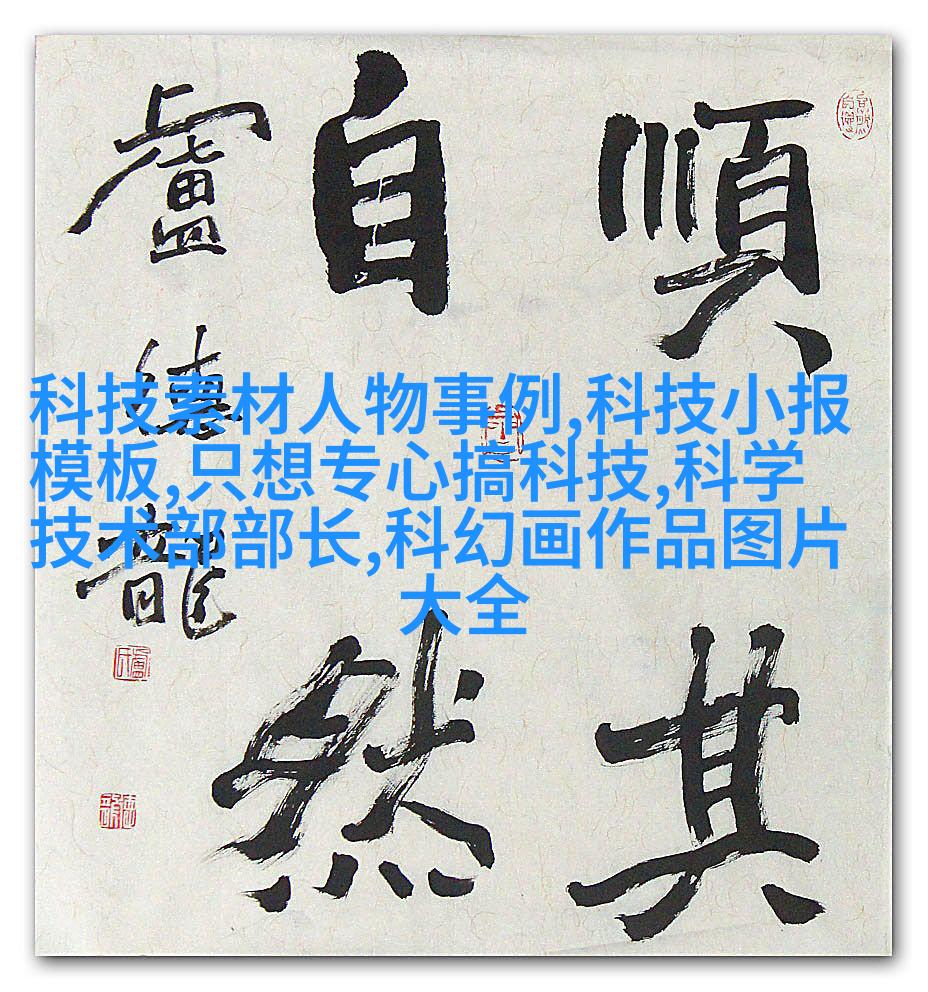 順其
自然
盧德龍
科技素材人物事例,科技小报
模板,只想专心搞科技,科学
技术部部长,科幻画作品图片
大全